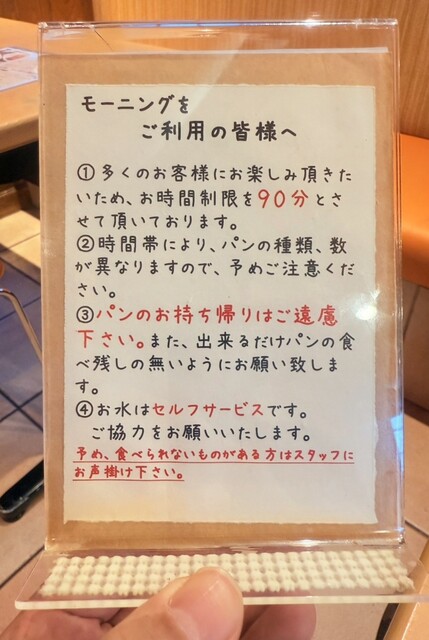 モーニングを
ご利用の皆様へ
①多くのお客様にお楽しみ頂きた
いため、お時間制限を90分とさ
せて頂いております。
②時間帯により、パンの種類、数
が異なりますので、予めご注意くだ
さい。
③パンのお持ち帰りはご遠慮
下さい。また、出来るだけパンの食
べ残しの無いようにお願い致しま
す。
④お水はセルフサービスです。
ご協力をお願いいたします。
予め、食べられないものがある方はスタッフに
お声掛け下さい。